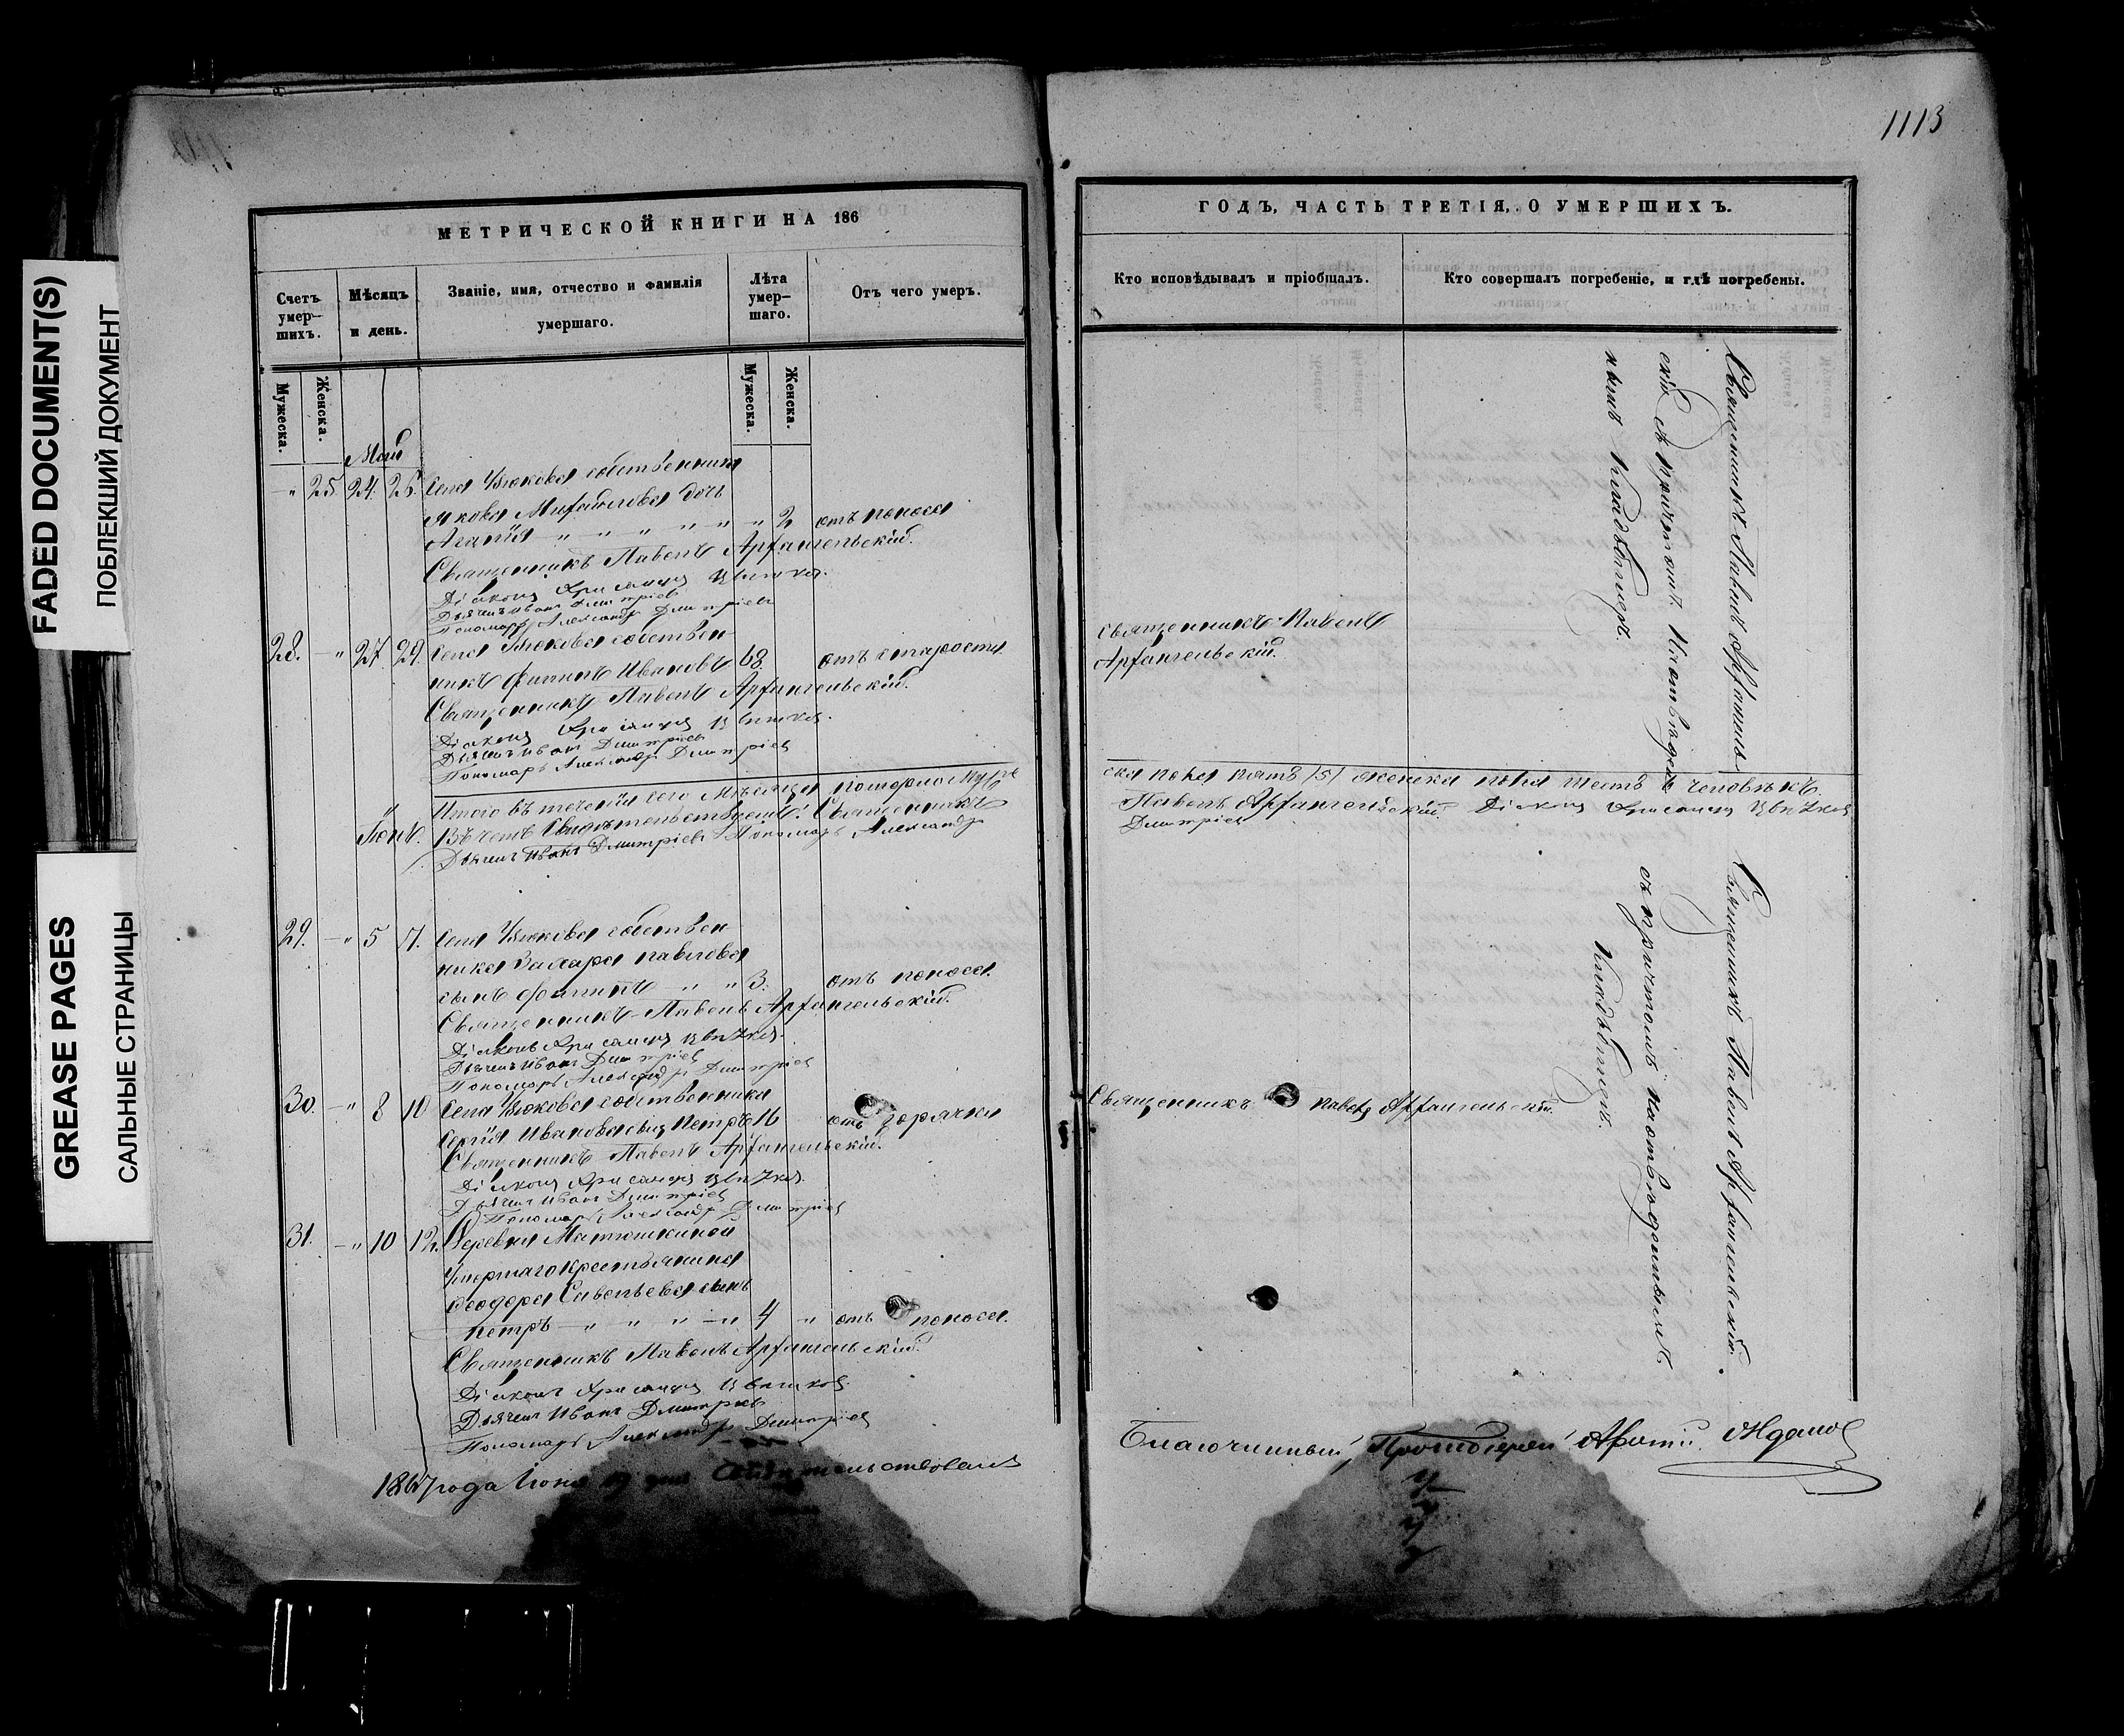 FADED DOCUMENT(S)
ПОБЛЕКШИЙ ДОКУМЕНТ
GREASE PAGES
САЛЬНЫЕ СТРАНИЦЫ
МЕТРИЧЕСКОЙ КНИГИ НА 186
Счетъ умер-шихъ.
Мѣсяцъ и день.
Званіе, имя, отчество и фамилія
умершаго.
Лѣта умер-шаго.
Отъ чего умеръ.
Мужеска.
Женска.
Мужеска.
Женска.
Май
25. 24. 26. Села собственника
Якова дочь
Агапія 2 отъ поноса
Священникъ Павелъ Архангельскій.
Діаконъ Хрисанфъ Цвѣтковъ.
Дьячекъ Иванъ Дмитріевъ
Пономарь Александръ Дмитріевъ
28. 27. 29. Села собствен-
никъ Филиппъ Ивановъ 68. отъ старости
Священникъ Павелъ Архангельскій.
Діаконъ Хрисанфъ Цвѣтковъ.
Дьячекъ Иванъ Дмитріевъ
Пономарь Александръ Дмитріевъ
Итого въ теченіи сего мѣсяца померло муже
Іюнь.
Священникъ
Дьячекъ Иванъ Дмитріевъ Пономарь Александръ
29. 5 7. Села собствен-
ника Захара Павлова
сынъ Филиппъ 3. отъ поноса.
Священникъ Павелъ Архангельскій.
Діаконъ Хрисанфъ Цвѣтковъ.
Дьячекъ Иванъ Дмитріевъ
Пономарь Александръ Дмитріевъ
30. 8 10 Села собственника
Сергія Иванова сынъ Петръ 16 отъ горячки
Священникъ Павелъ Архангельскій.
Діаконъ Хрисанфъ Цвѣтковъ.
Дьячекъ Иванъ Дмитріевъ
Пономарь Александръ Дмитріевъ
31. 10 12. Деревни Матюшкиной
умершаго крестьянина
Ѳеодора Савельева сынъ
Петръ 4 отъ поноса.
Священникъ Павелъ Архангельскій.
Діаконъ Хрисанфъ Цвѣтковъ
Дьячекъ Иванъ Дмитріевъ
Пономарь Александръ Дмитріевъ
1867 года Іюня 19 дня свидѣтельствовалъ
1113
ГОДЪ, ЧАСТЬ ТРЕТІЯ, О УМЕРШИХЪ.
Кто исповѣдывалъ и пріобщалъ.
Кто совершалъ погребеніе, и гдѣ погребены.
Священникъ Павелъ Архангель
скій съ причтомъ на отведен
номъ кладбищѣ.
Священникъ Павелъ
Архангельскій.
ска пола пять /5/ женска пола шесть человѣкъ.
Павелъ Архангельскій. Діаконъ Хрисанфъ Цвѣтковъ
Дмитріевъ
Священникъ Павелъ Архангельскій.
съ причтомъ на отведенномъ
кладбищѣ.
Священникъ Павелъ Архангельскій.
Благочинный, Протоіерей Ждановъ